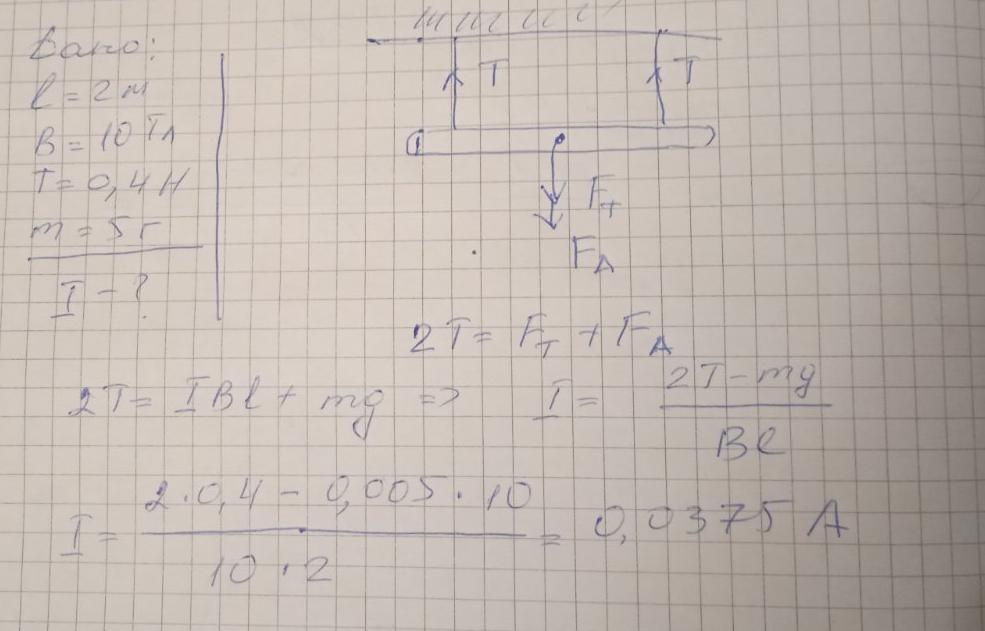 Дано:
l = 2 м
B = 10 Тл
T = 0,4 Н
m = 5 г
I - ?
T T
F_T
F_A
2T = F_T + F_A
2T = IBl + mg => I = (2T - mg) / (Bl)
I = (2 · 0,4 - 0,005 · 10) / (10 · 2) = 0,0375 А